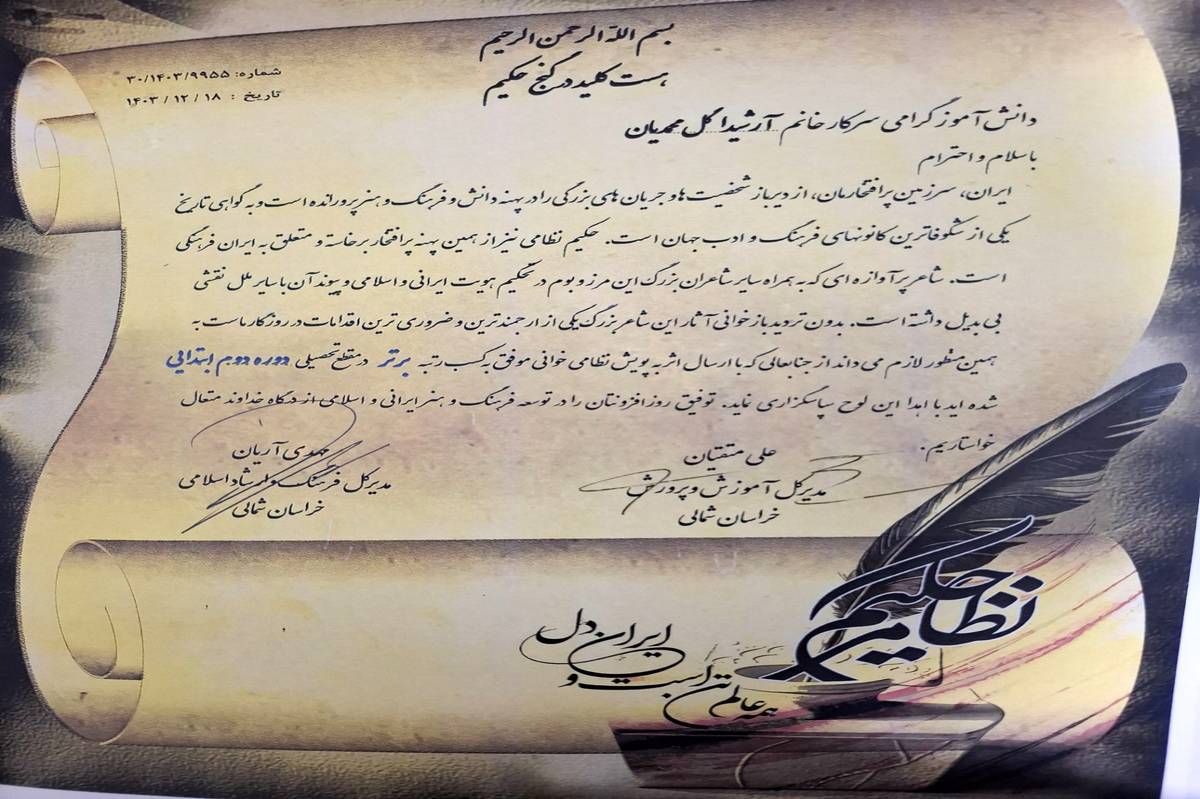 بسم الله الرحمن الرحیم
هست کلید در گنج حکیم
شماره: ۳۰/۱۴۰۳/۹۹۵۵
تاریخ : ۱۴۰۳/۱۲/۱۸
دانش آموز گرامی سرکار خانم آرشیدا گل محمدیان
با سلام و احترام
ایران، سرزمین پرافتخارمان، از دیرباز شخصیت ها و جریان های بزرگی را در پهنه دانش و فرهنگ و هنر پرورانده است و به گواهی تاریخ
یکی از شکوفاترین کانونهای فرهنگ و ادب جهان است. حکیم نظامی نیز از همین پهنه پرافتخار برخاسته و متعلق به ایران فرهنگی
است. شاعر پرآوازه ای که به همراه سایر شاعران بزرگ این مرز و بوم در تحکیم هویت ایرانی و اسلامی و پیوند آن با سایر ملل نقشی
بی بدیل داشته است. بدون تردید بازخوانی آثار این شاعر بزرگ یکی از ارجمندترین و ضروری ترین اقدامات در روزگار ماست به
همین منظور لازم می داند از جنابعالی که با ارسال اثر به پویش نظامی خوانی موفق به کسب رتبه برتر در مقطع تحصیلی دوره دوم ابتدایی
شده اید با اهدا این لوح سپاسگزاری نماید. توفیق روزافزونتان را در توسعه فرهنگ و هنر ایرانی و اسلامی از درگاه خداوند متعال
خواستاریم.
علی متقیان
مدیرکل آموزش و پرورش
خراسان شمالی
مهدی آریان
مدیرکل فرهنگ و ارشاد اسلامی
خراسان شمالی
حکیم نظامی
همه عالم تن است و ایران دل